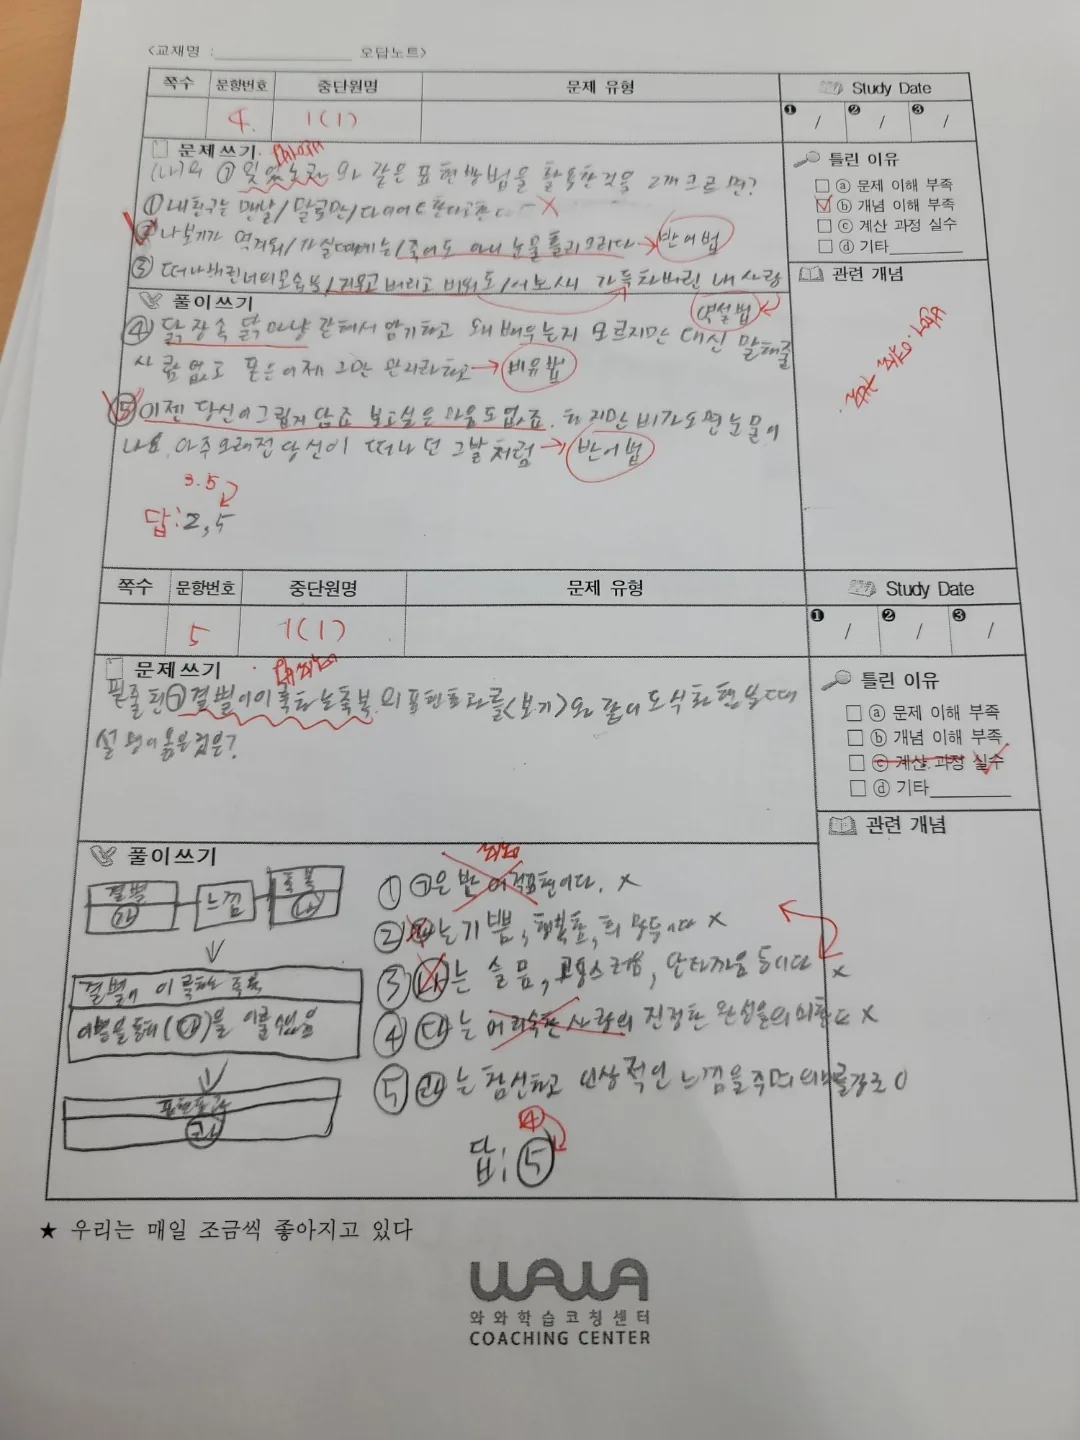 <교재명 : 오답노트>
쪽수 문항번호 중단원명 문제 유형 Study Date
4. 1(1) ❶ / ❷ / ❸ /
문제쓰기.
(나)의 ㉠ 잊었노라 와 같은 표현방법을 활용한것을 2개 고르면?
① 내친구는 맨날/말로만/다이어트한다고한다 X
② 나보기가 역겨워/가실때에는/죽어도 아니 눈물흘리오리다 → 반어법
③ 떠나버린너의모습을/지우고 버리고 비워도/어느새 가득차버린 내 사랑
역설법
틀린 이유
ⓐ 문제 이해 부족
ⓑ 개념 이해 부족
ⓒ 계산 과정 실수
ⓓ 기타
관련 개념
풀이쓰기
④ 닭장속 닭마냥 갇혀서 암기하고 왜배우는지 모르지만 대신 말해줄
사람없고 폰은어제 그만 관리하고 → 비유법
⑤ 이젠 당신이그립지 않죠 보고싶은 마음도없죠. 하지만 비가오면눈물이
나요. 아주오래전당신이 떠나던 그날처럼 → 반어법
3.5
답: 2,5
쪽수 문항번호 중단원명 문제 유형 Study Date
5 1(1) ❶ / ❷ / ❸ /
문제쓰기
밑줄친 ㉠ 결별이이룩하는축복의 표현효과를 <보기>와 같이 도식화했을때
설명이옳은것은?
틀린 이유
ⓐ 문제 이해 부족
ⓑ 개념 이해 부족
ⓒ 계산 과정 실수
ⓓ 기타
관련 개념
풀이쓰기
결별 느낌 축복
㉮ ㉯
결별이 이룩하는 축복
이별을통해 (㉰)을 이룰수있음
표현효과
㉱
역설
① ㉠은 반어적표현이다. X
② ㉮는 기쁨, 행복함, 희망등이다 X
③ ㉯는 슬픔, 고통스러움, 안타까움 등이다 X
④ ㉰는 어리숙한 사랑의 진정한 완성을의미한다 X
⑤ ㉱는 참신하고 인상적인 느낌을주며 의미를강조 O
④
답: ⑤
★ 우리는 매일 조금씩 좋아지고 있다
WAWA
와와학습코칭센터
COACHING CENTER